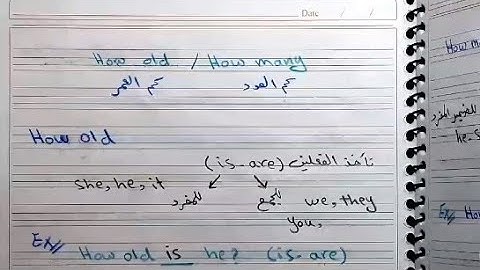 Date / /
How old / How many
كم العمر كم العدد
How old
تأخذ الفعلين (is - are)
she, he, it للمفرد للجمع we, they
you,
Ex// How old is he? (is - are)
How m
he-s
How